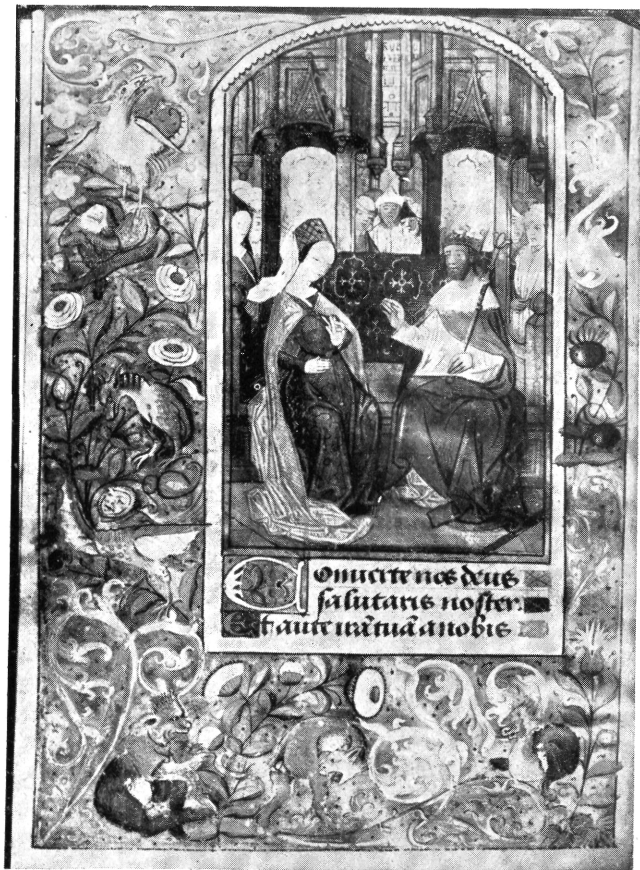 Conuerte nos deus
salutaris noster.
Et auerte irā tuā a nobis